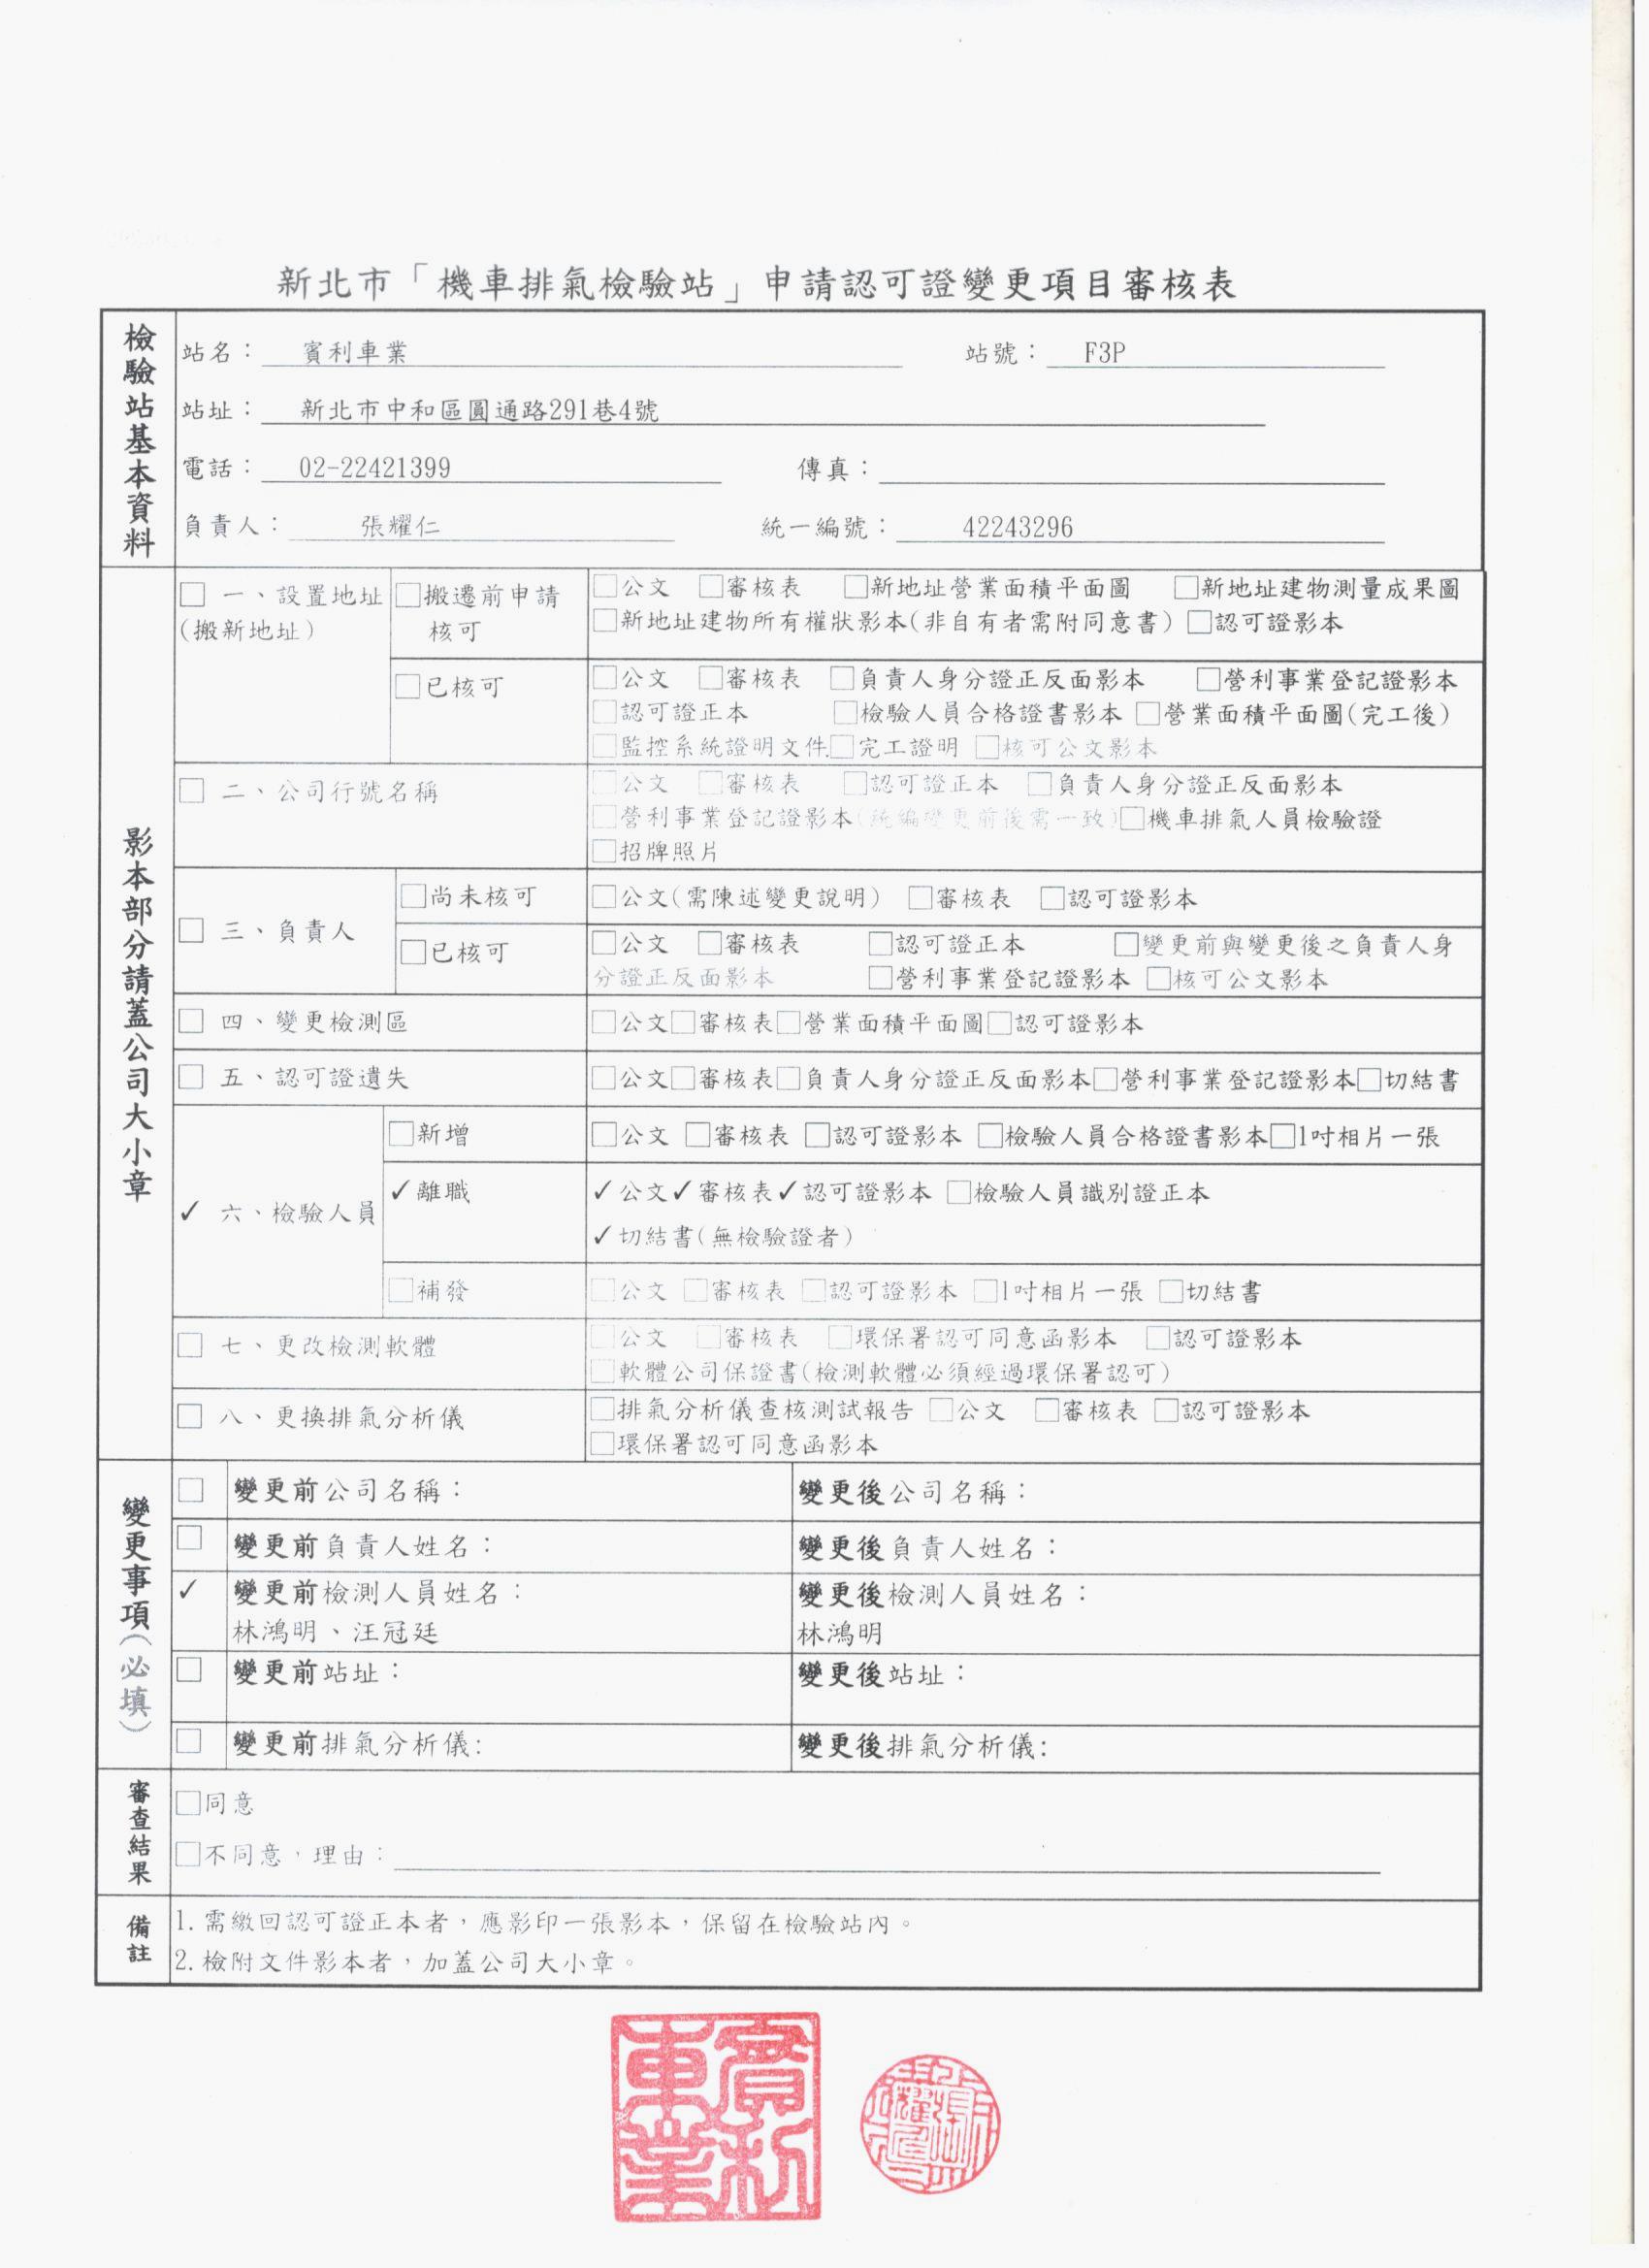 新北市「機車排氣檢驗站」申請認可證變更項目審核表
檢驗站基本資料
站名： 賓利車業 站號： F3P
站址： 新北市中和區圓通路291巷4號
電話： 02-22421399 傳真：
負責人： 張耀仁 統一編號： 42243296
影本部分請蓋公司大小章
□ 一、設置地址
(搬新地址)
□搬遷前申請
核可
□公文 □審核表 □新地址營業面積平面圖 □新地址建物測量成果圖
□新地址建物所有權狀影本(非自有者需附同意書) □認可證影本
□已核可
□公文 □審核表 □負責人身分證正反面影本 □營利事業登記證影本
□認可證正本 □檢驗人員合格證書影本 □營業面積平面圖(完工後)
□監控系統證明文件□完工證明 □核可公文影本
□ 二、公司行號名稱
□公文 □審核表 □認可證正本 □負責人身分證正反面影本
□營利事業登記證影本(統編變更前後需一致)□機車排氣人員檢驗證
□招牌照片
□ 三、負責人
□尚未核可
□公文(需陳述變更說明) □審核表 □認可證影本
□已核可
□公文 □審核表 □認可證正本 □變更前與變更後之負責人身
分證正反面影本 □營利事業登記證影本 □核可公文影本
□ 四、變更檢測區
□公文□審核表□營業面積平面圖□認可證影本
□ 五、認可證遺失
□公文□審核表□負責人身分證正反面影本□營利事業登記證影本□切結書
✓ 六、檢驗人員
□新增
□公文 □審核表 □認可證影本 □檢驗人員合格證書影本□1吋相片一張
✓離職
✓公文✓審核表✓認可證影本 □檢驗人員識別證正本
✓切結書(無檢驗證者)
□補發
□公文 □審核表 □認可證影本 □1吋相片一張 □切結書
□ 七、更改檢測軟體
□公文 □審核表 □環保署認可同意函影本 □認可證影本
□軟體公司保證書(檢測軟體必須經過環保署認可)
□ 八、更換排氣分析儀
□排氣分析儀查核測試報告 □公文 □審核表 □認可證影本
□環保署認可同意函影本
變更事項(必填)
□ 變更前公司名稱： 變更後公司名稱：
□ 變更前負責人姓名： 變更後負責人姓名：
✓ 變更前檢測人員姓名： 變更後檢測人員姓名：
林鴻明、汪冠廷 林鴻明
□ 變更前站址： 變更後站址：
□ 變更前排氣分析儀: 變更後排氣分析儀:
審查結果
□同意
□不同意，理由：
備註
1.需繳回認可證正本者，應影印一張影本，保留在檢驗站內。
2.檢附文件影本者，加蓋公司大小章。
賓利
車業